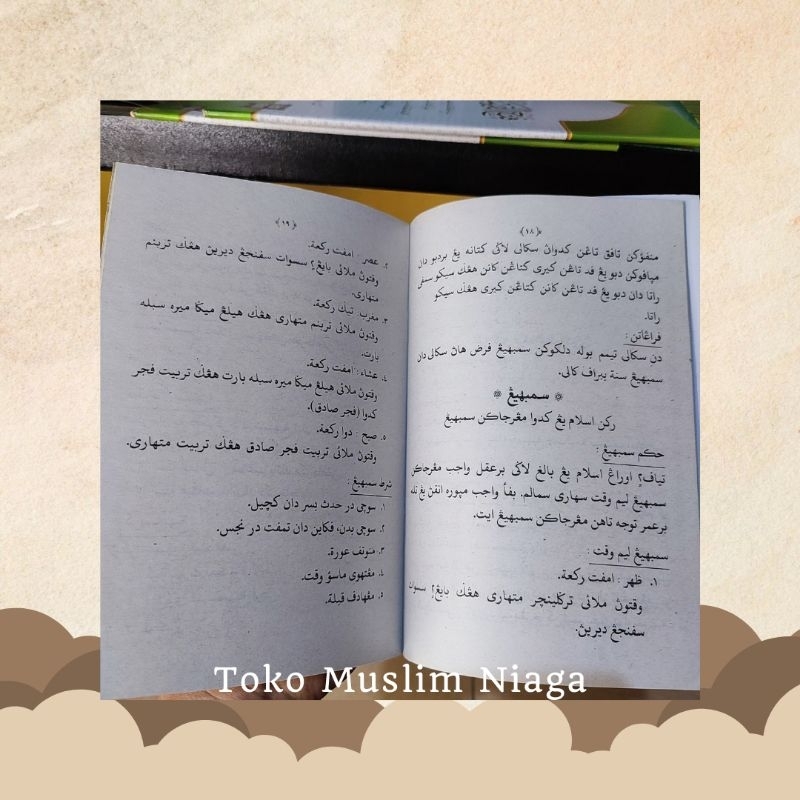 ﴿١٨﴾
منفؤكن تافق تاڠن كدوان سكالي لاڬي كتانه يڠ بردبو دان
مپافوكن دبو يڠ فد تاڠن كيري كتاڠن كانن هڠݢ سيكو سمفي
راتا دان دبو يڠ فد تاڠن كانن كتاڠن كيري هڠݢ سيكو
راتا.
فراڠاتن :
دن سكالي تيمم بوله دلكوكن سمبهيڠ فرض هاڽ سكالي دان
سمبهيڠ سنة ببراف كالي.
* سمبهيڠ *
ركن اسلام يڠ كدوا مڠرجاكن سمبهيڠ
حكم سمبهيڠ :
تياف٢ اوراڠ اسلام يڠ بالغ لاڬي برعقل واجب مڠرجاكن
سمبهيڠ ليم وقت سهاري سمالم. بڤأ واجب مپوره انقڽ يڠ تله
برعمر توجه تاهن مڠرجاكن سمبهيڠ ايت.
سمبهيڠ ليم وقت :
١. ظهر : امفت ركعة.
وقتوڽ ملائي ترڬلينچر متهاري هڠݢ بايڠ٢ سسوات
سفنجڠ ديرين.
﴿١٩﴾
٢. عصر : امفت ركعة.
وقتوڽ ملائي بايڠ٢ سسوات سفنجڠ ديرين هڠݢ تربنم
متهاري.
٣. مغرب : تيݢ ركعة.
وقتوڽ ملائي تربنم متهاري هڠݢ هيلڠ ميݢا ميره سبله
بارت.
٤. عشاء : امفت ركعة.
وقتوڽ ملائي هيلڠ ميݢا ميره سبله بارت هڠݢ تربيت فجر
كدوا (فجر صادق).
٥. صبح : دوا ركعة.
وقتوڽ ملائي تربيت فجر صادق هڠݢ تربيت متهاري.
شرط سمبهيڠ :
١. سوچي در حدث بسر دان كچيل.
٢. سوچي بدن، فكاين دان تمفت در نجس.
٣. منوتف عورة.
٤. مڠتهوي ماسؤ وقت.
٥. مڠهادف قبلة.
Toko Muslim Niaga